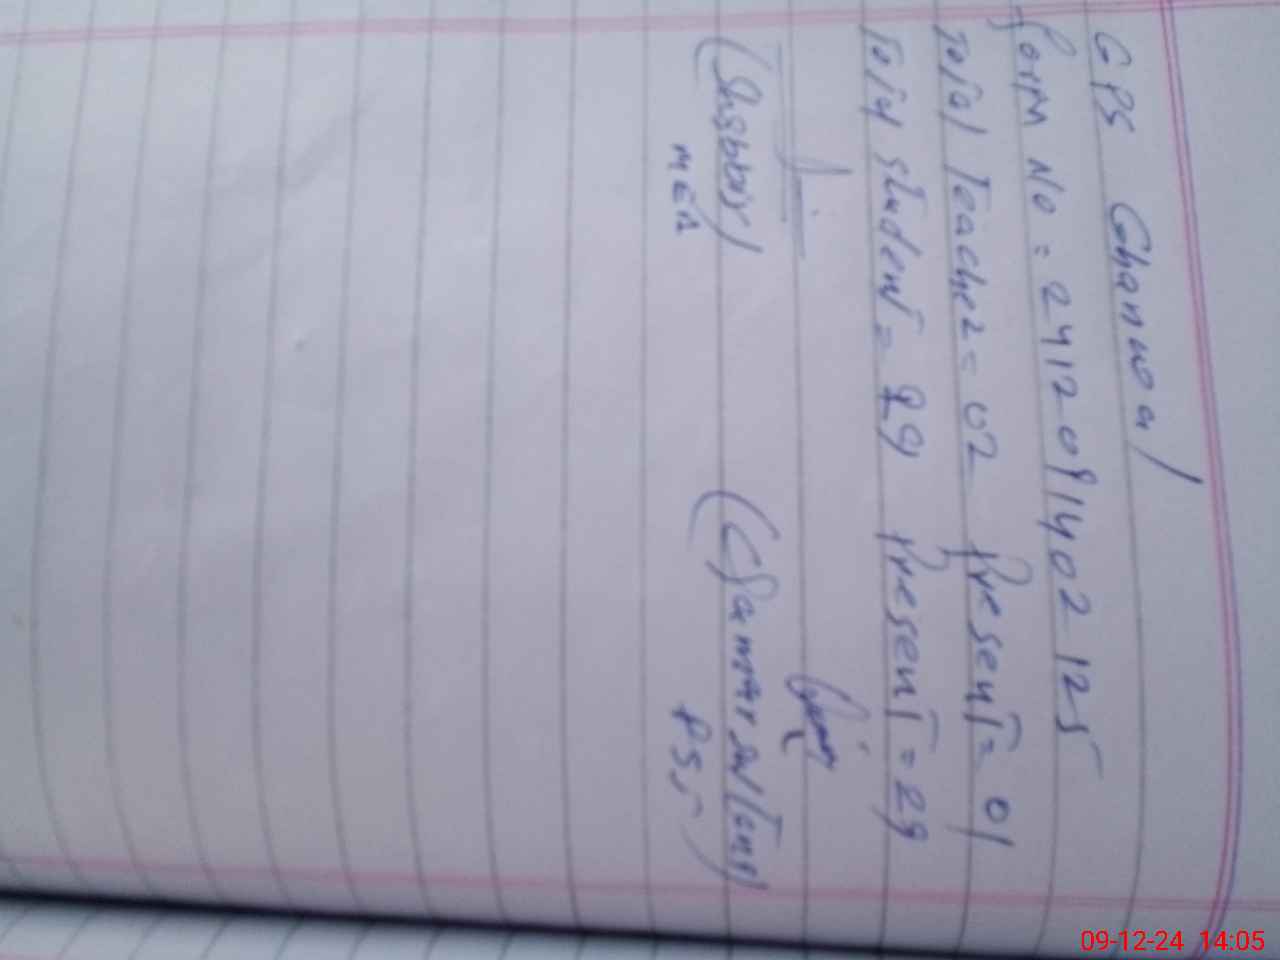 GPS Ghanwal
Form No = 2412091402125
Total Teacher = 02 Present = 01
Total student = 29 Present = 29
(Shabbir) (Qamar sultana)
MEA PST
09-12-24 14:05